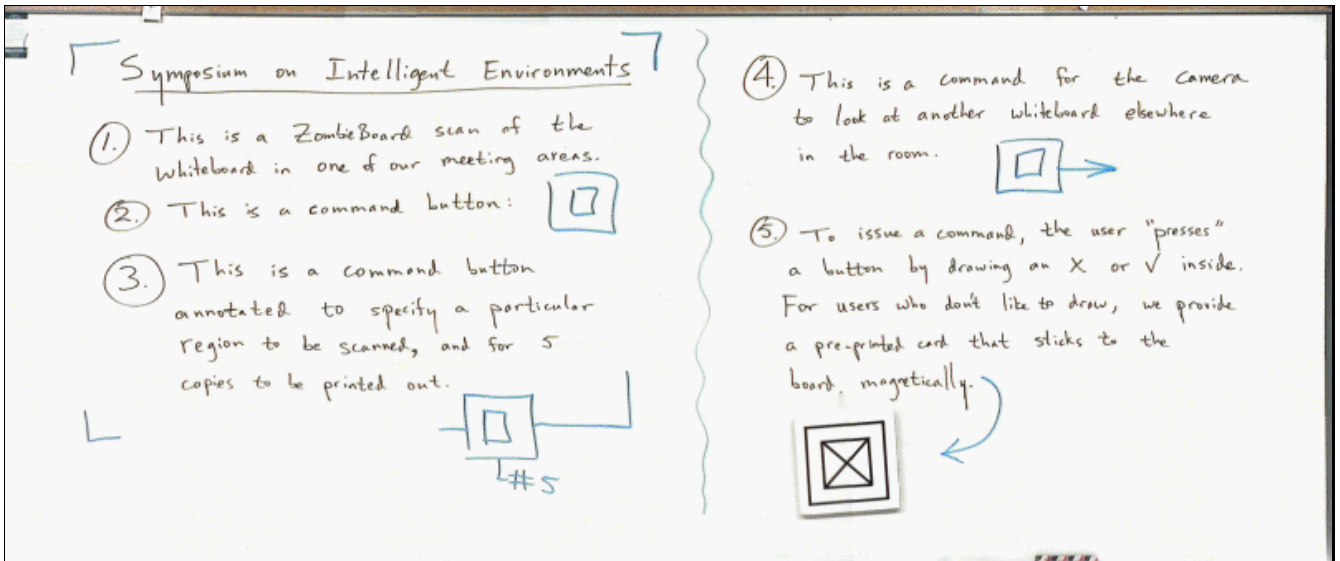 Symposium on Intelligent Environments
1. This is a ZombieBoard scan of the
whiteboard in one of our meeting areas.
2. This is a command button:
3. This is a command button
annotated to specify a particular
region to be scanned, and for 5
copies to be printed out.
#5
4. This is a command for the camera
to look at another whiteboard elsewhere
in the room.
5. To issue a command, the user "presses"
a button by drawing an X or √ inside.
For users who don't like to draw, we provide
a pre-printed card that sticks to the
board, magnetically.